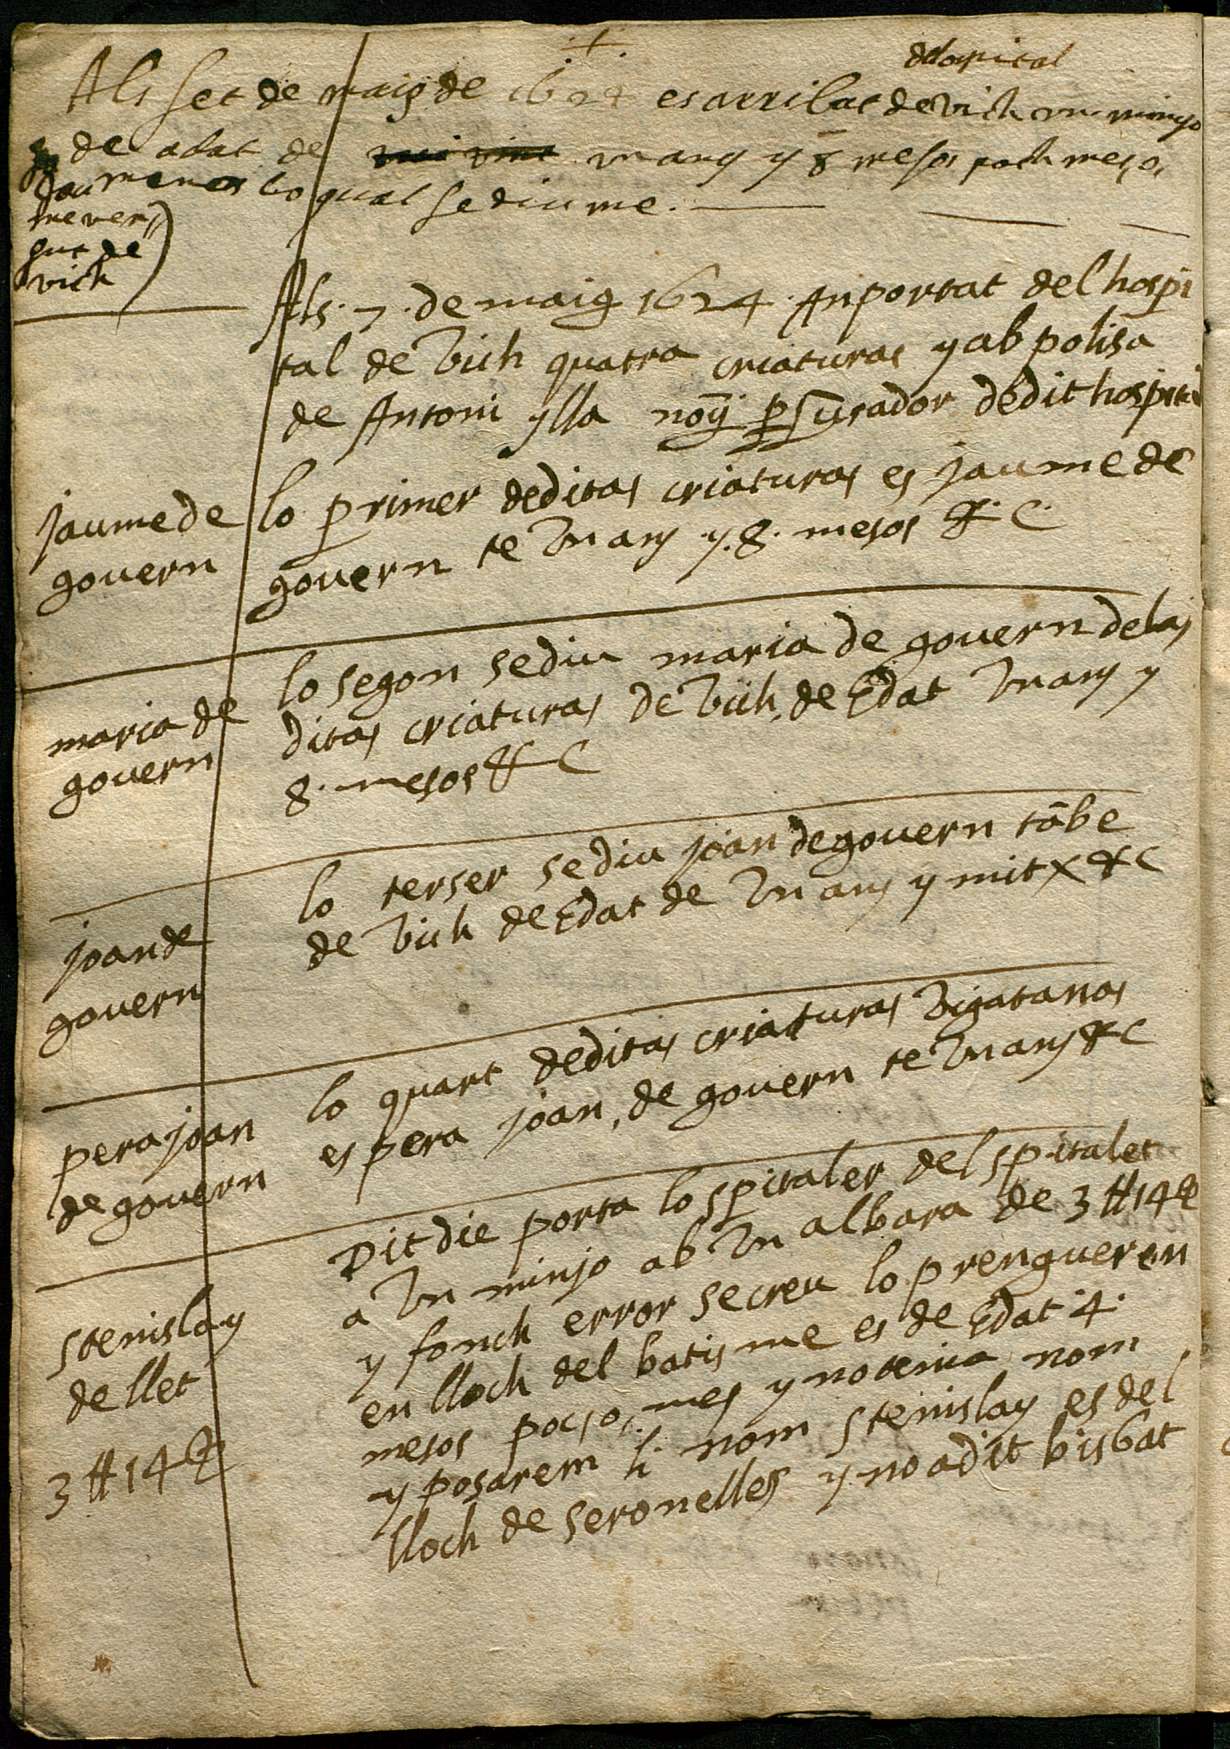 +
delospital
Als set de maig de 1624 es arribat de vich un minyo
de adat de un any y 8 mesos poch mes o
menos lo qual se diu me.
Jau
me ver
gut de
vich
Als .7. de maig 1624. An portat del hospi
tal de Vich quatra criaturas y ab polisa
de Antoni ylla noÿ p̱surador de dit hospital
Jaume de
govern
lo primer de ditas criaturas es Jaume de
govern te Un any y .8. mesos &. C.
maria de
govern
lo segon se diu maria de govern de las
ditas criaturas de Vich, de Edat Un any y
8. mesos & C
Joan de
govern
lo terser se diu Joan de govern tābe
de Vich de Edat de Un any y mitx & C
pera Joan
de govern
lo quart de ditas criaturas Vigatanas
es pera Joan, de govern te Un any & C
stenislay
de llet
3 ₶ 14 ẜ
Dit die porta lo spitaler del spitalet
a Un minjo ab Un albara de 3 ₶ 14 ẜ
y fonch error se creu lo prengueren
en lloch del batisme es de Edat 4.
mesos poc so. mes y no tenia nom
y posarem li nom stenislay es del
lloch de seronelles y no a dit bisbat